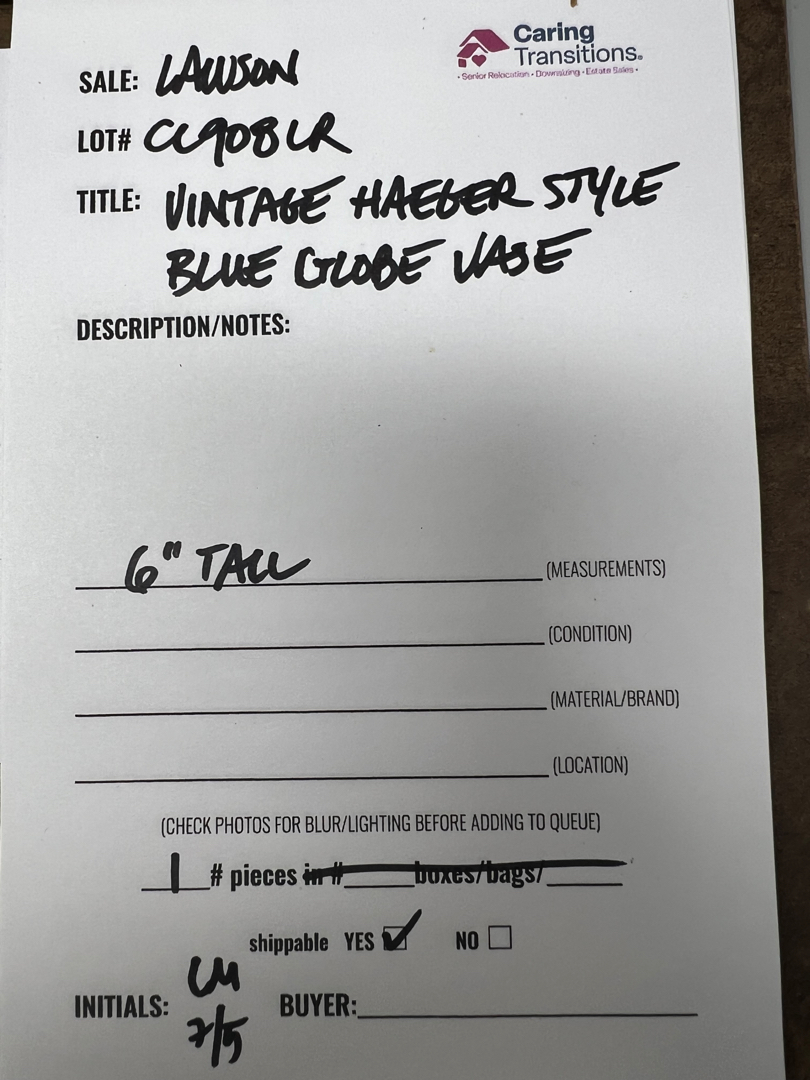 Caring
Transitions®
• Senior Relocation • Downsizing • Estate Sales •
SALE: LAWSON
LOT# CC908LR
TITLE: VINTAGE HAEGER STYLE
BLUE GLOBE VASE
DESCRIPTION/NOTES:
6" TALL (MEASUREMENTS)
(CONDITION)
(MATERIAL/BRAND)
(LOCATION)
(CHECK PHOTOS FOR BLUR/LIGHTING BEFORE ADDING TO QUEUE)
1 # pieces in # boxes/bags/
shippable YES ✓ NO
INITIALS: 7/5 BUYER: